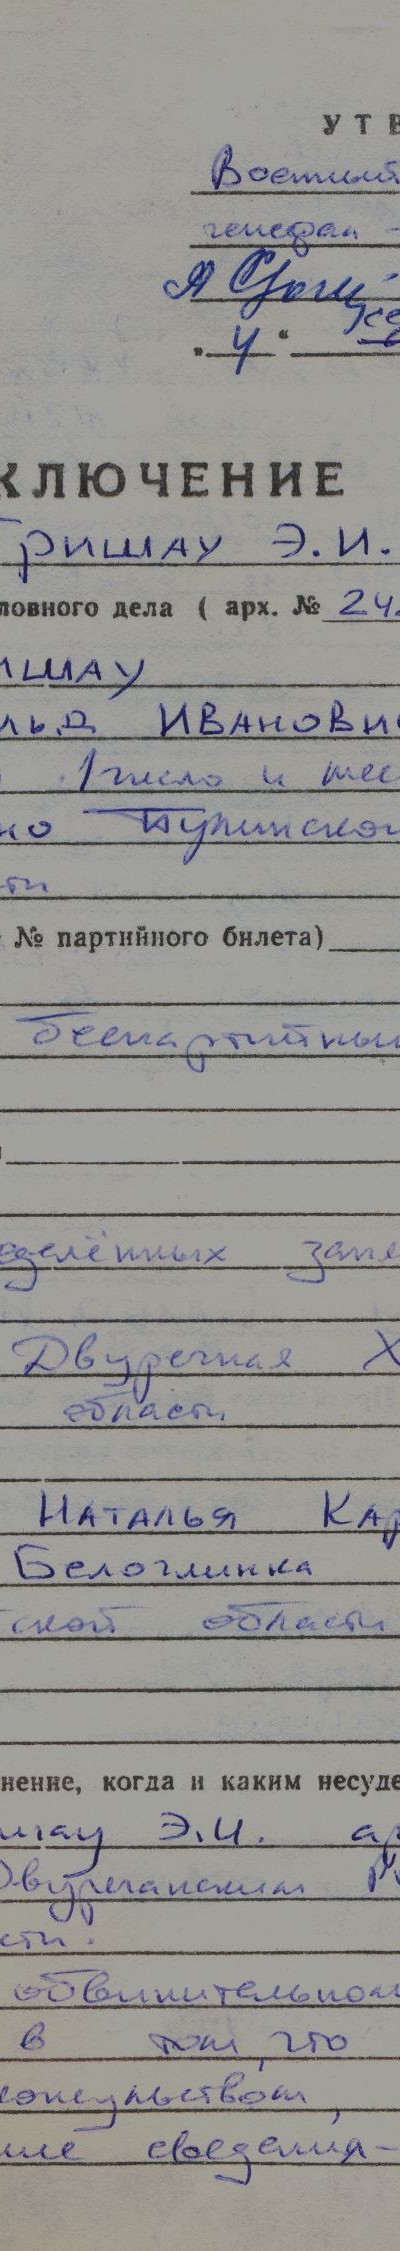 УТВ
Военный
генерал -
" 4 "
КЛЮЧЕНИЕ
Гришау Э.И.
ловного дела ( арх. № 24
ишау
льд Иванови
число и мес
но Купинской
сти
№ партийного билета)
беспартийный
еделённых запа
Двуречная Х
области
Наталья Кар
Белоглинка
ской области
нение, когда и каким несуде
шау Э.И. ар
Двуречанским Р
сти.
обвинительном
в том, что
консульством,
ние сведения-